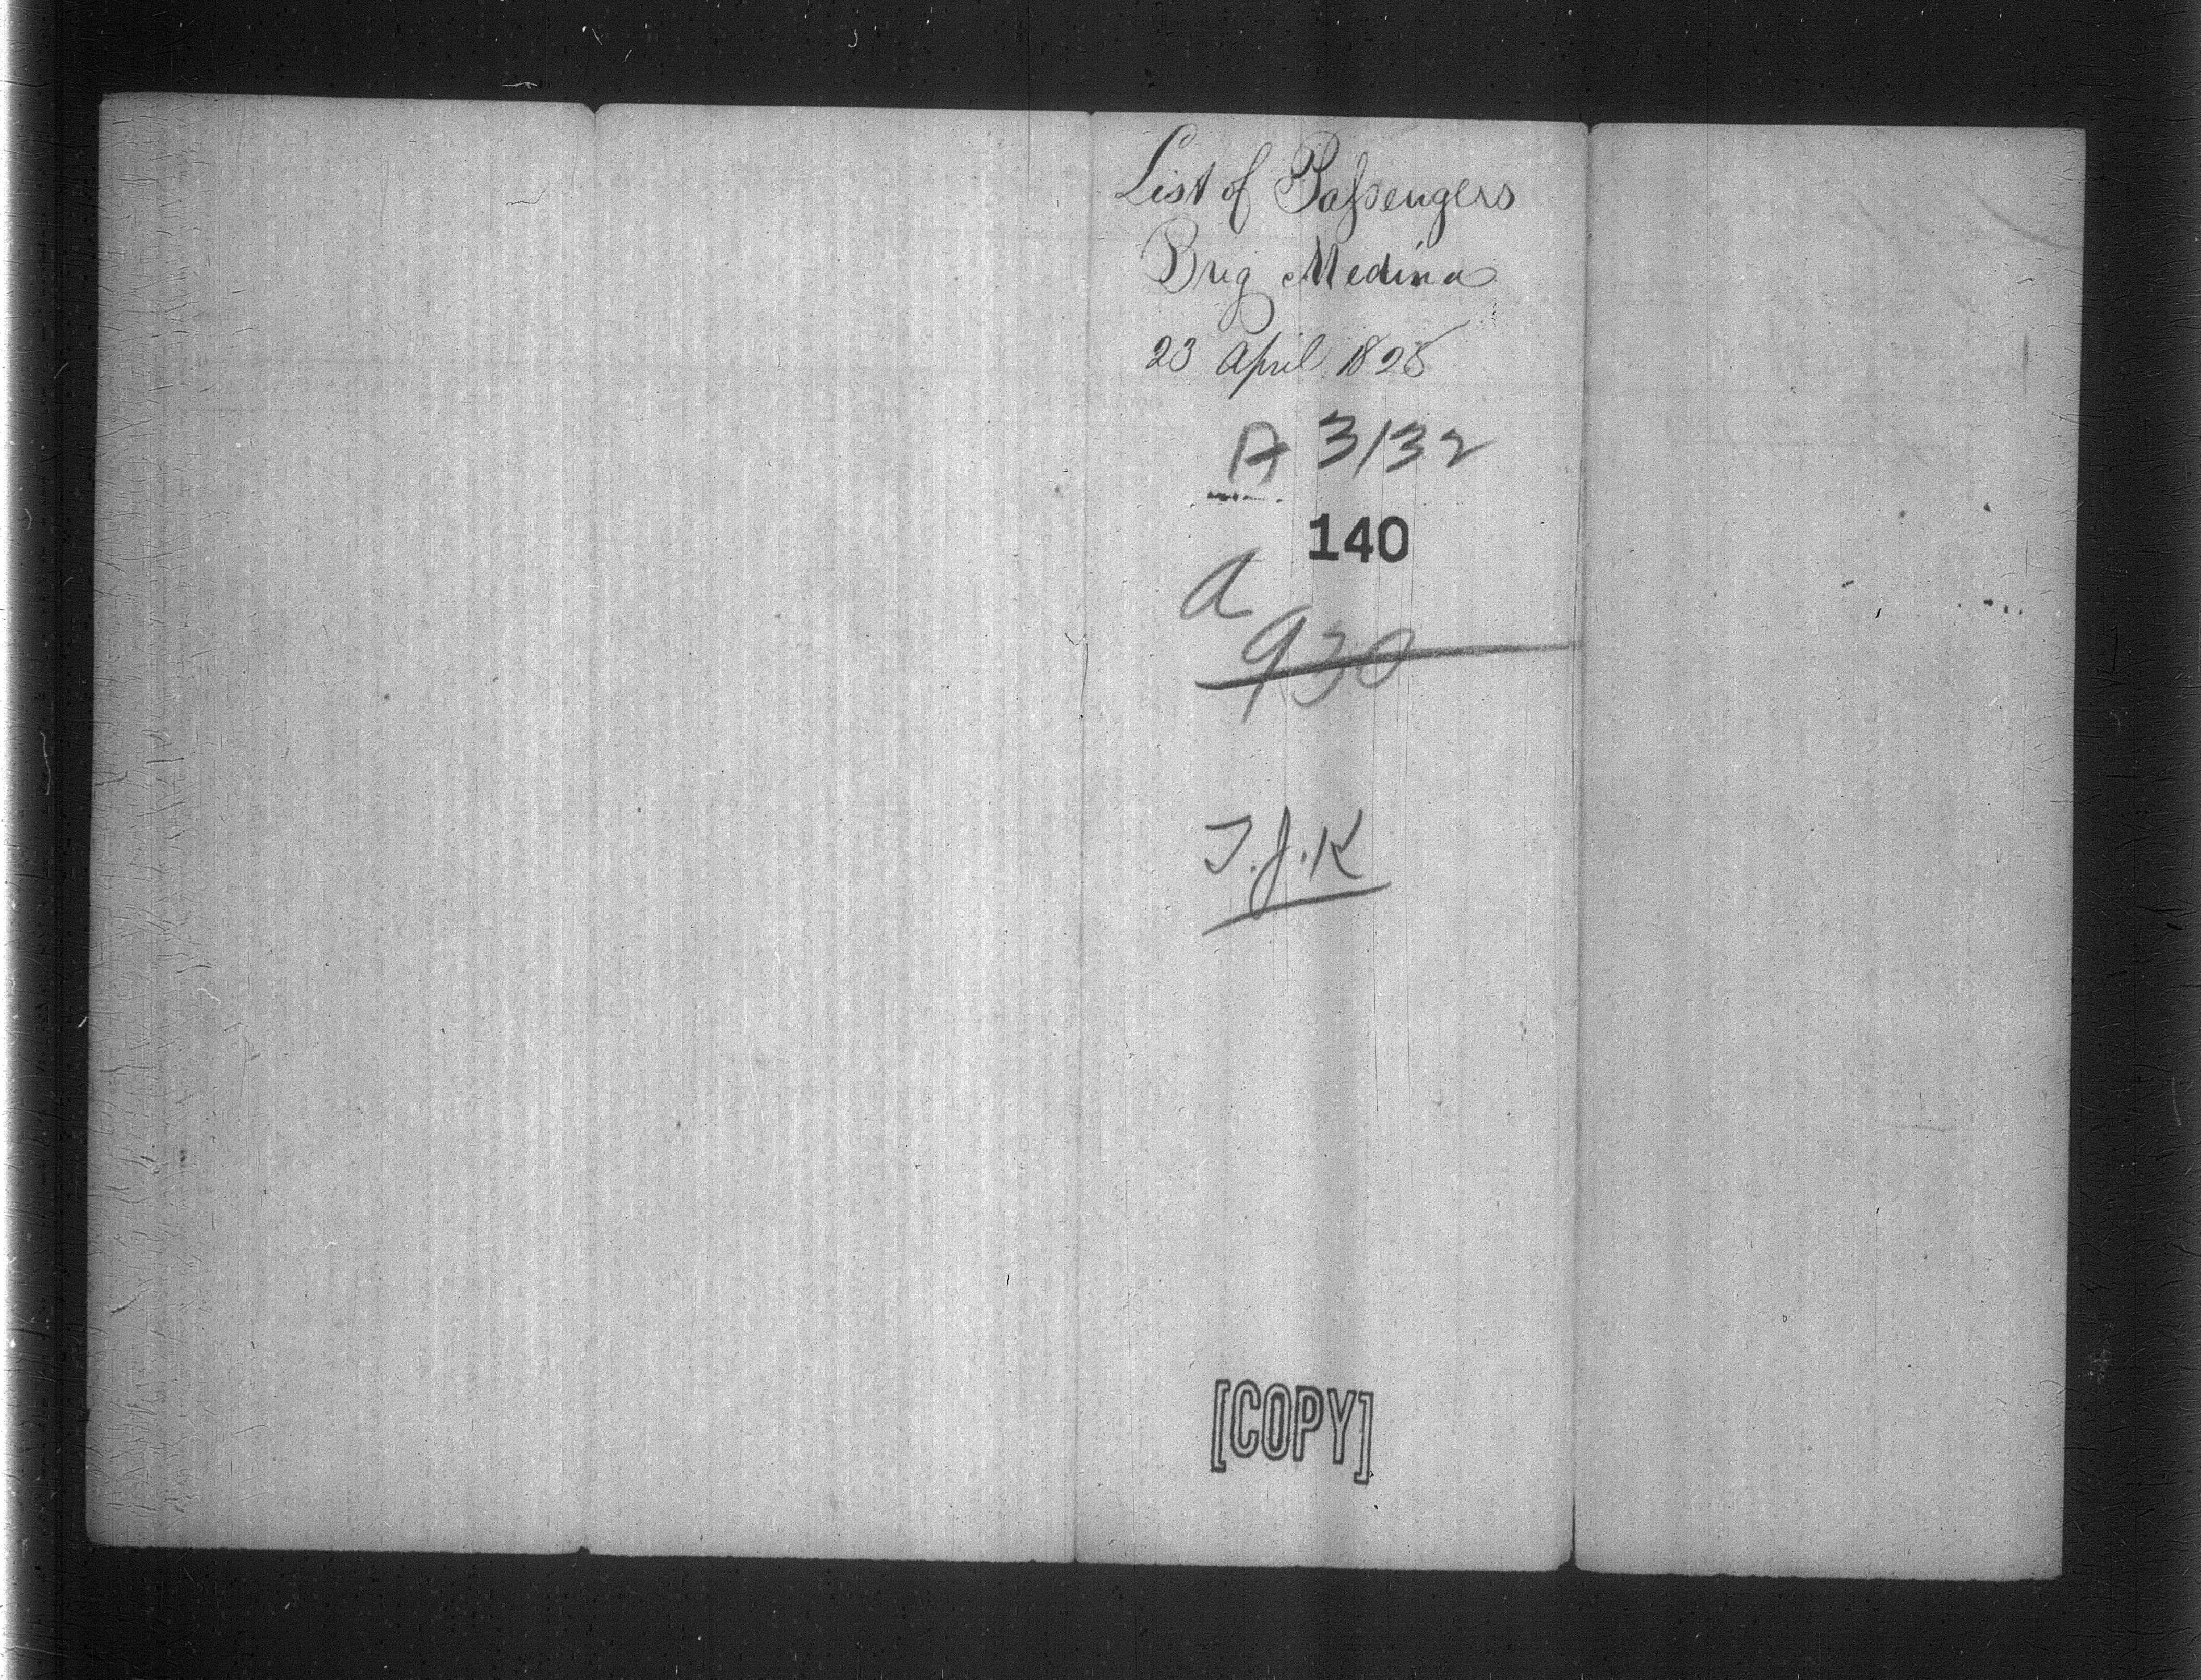 List of Passengers
Brig Medina
23 April 1828
A 3132
140
a
930
T.J.K
[COPY]